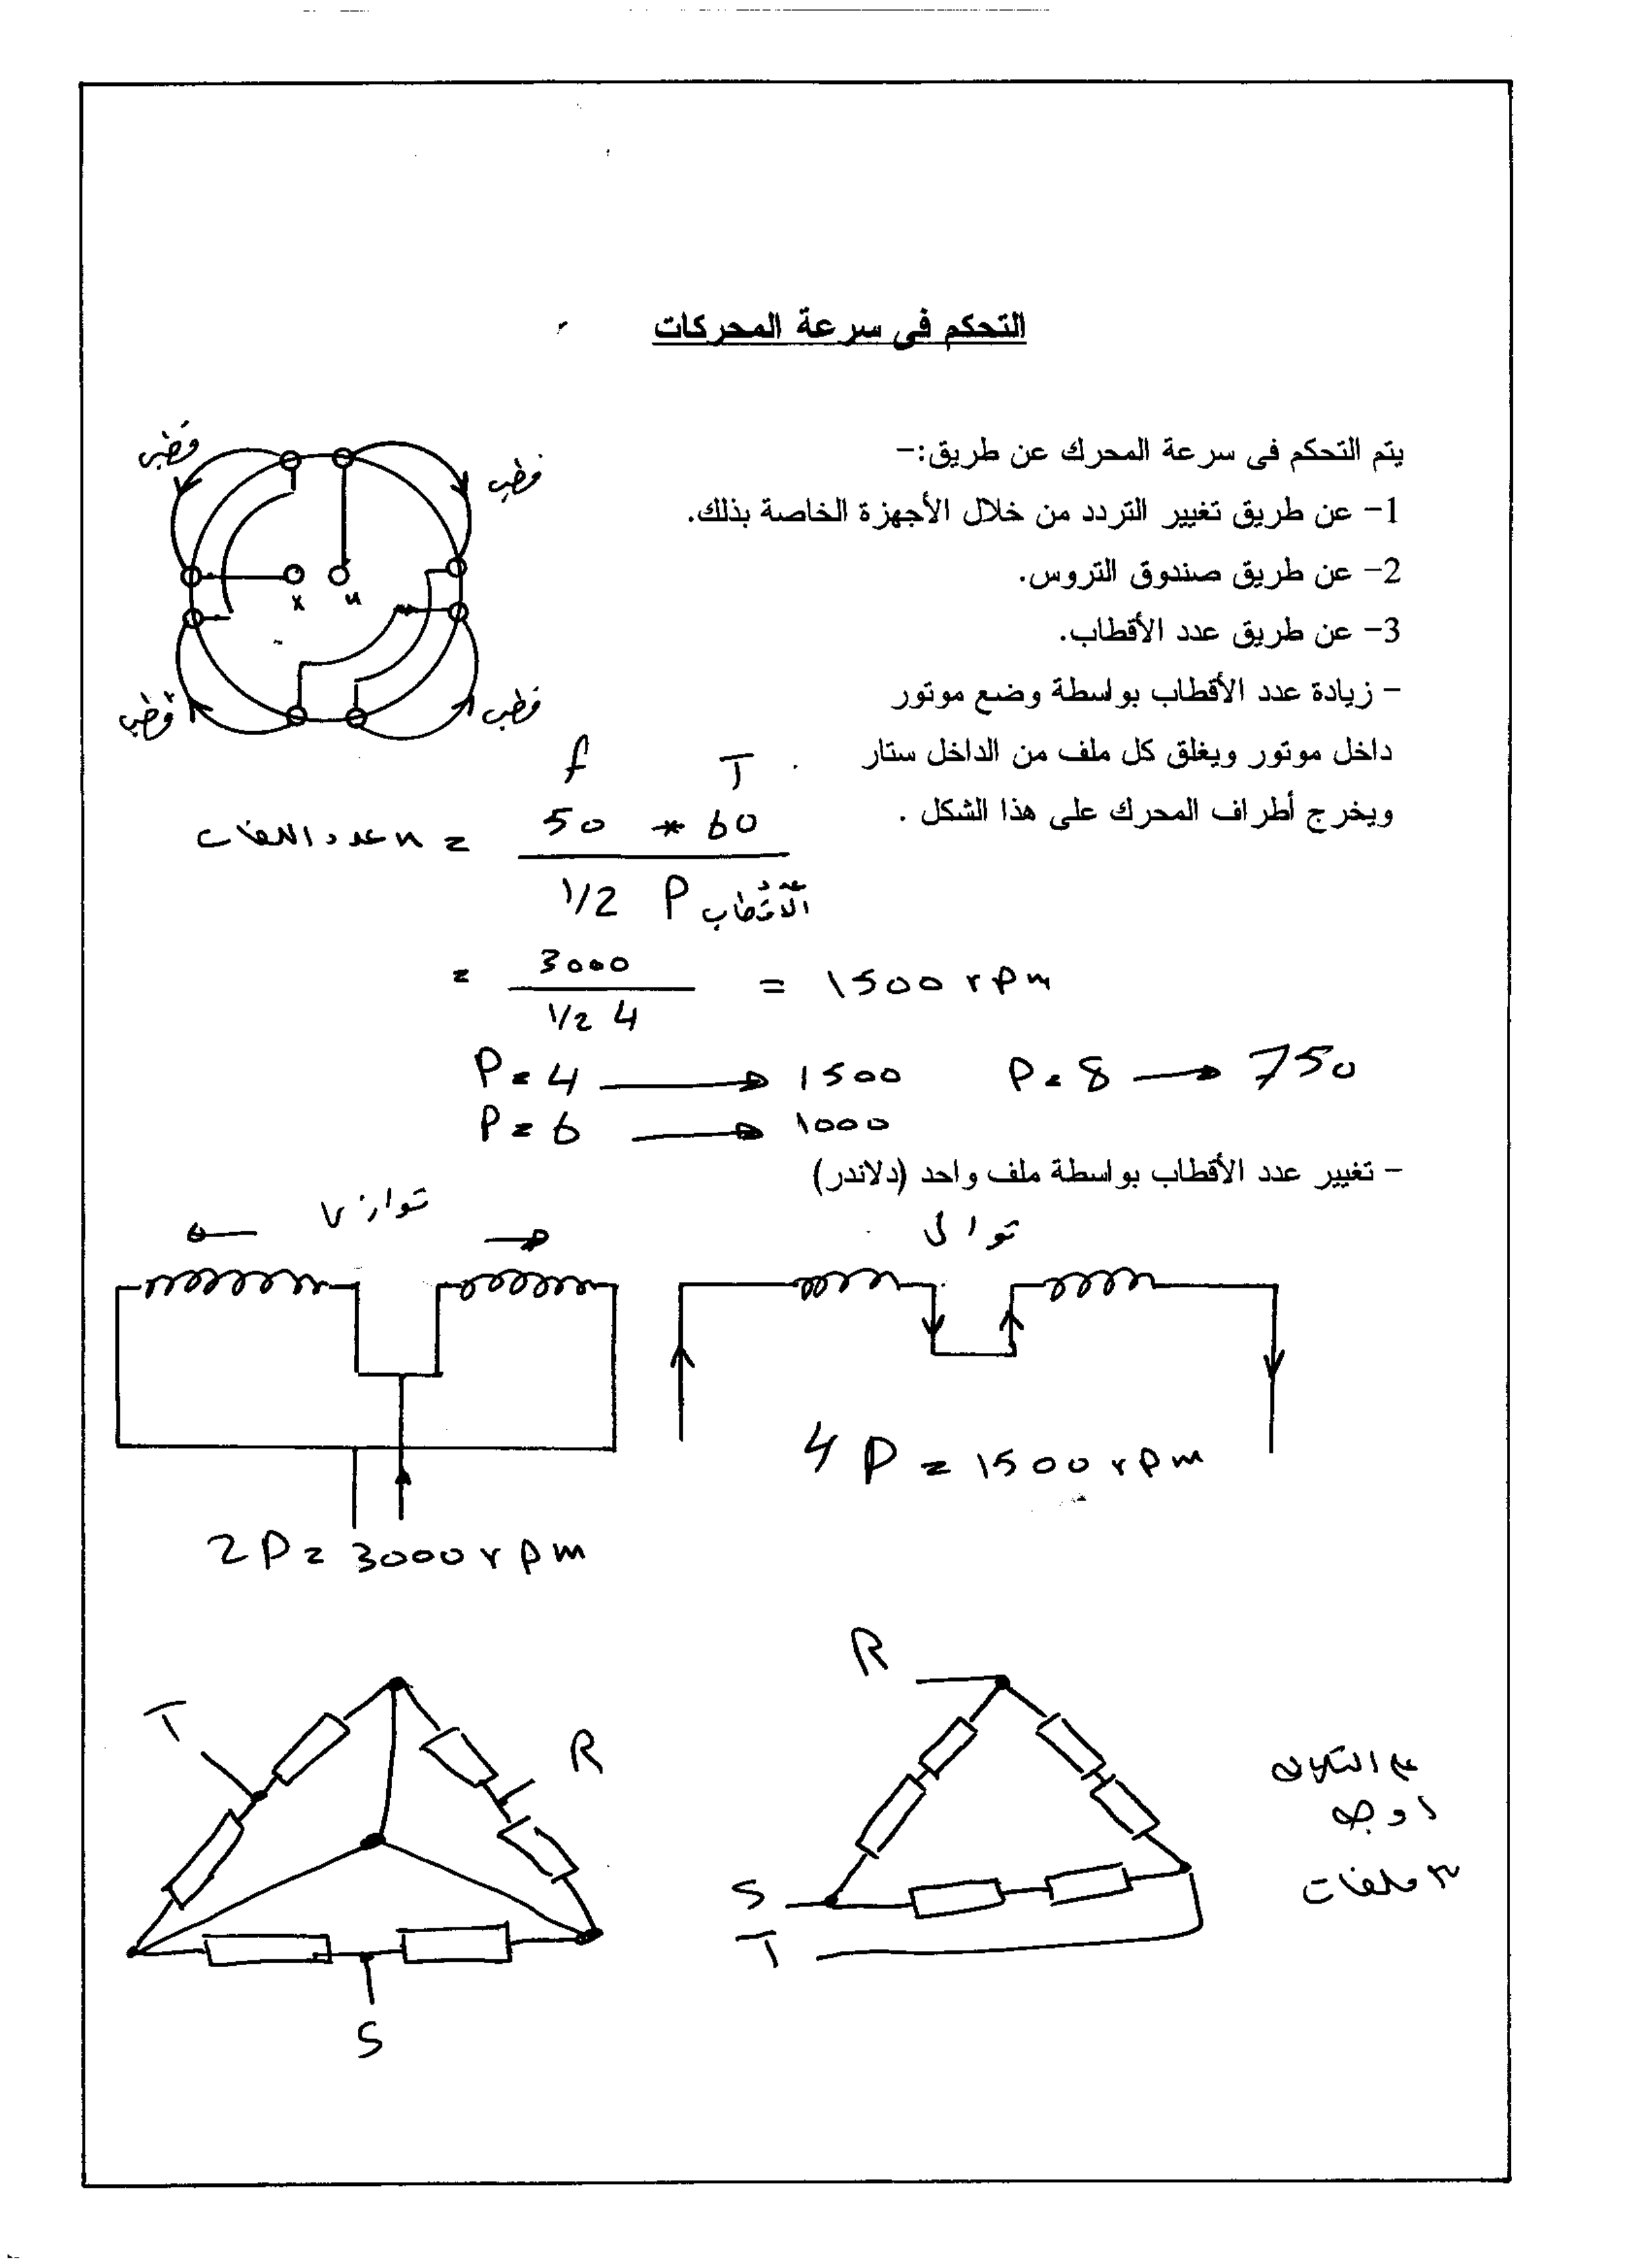 التحكم فى سرعة المحركات
يتم التحكم فى سرعة المحرك عن طريق:-
1- عن طريق تغيير التردد من خلال الأجهزة الخاصة بذلك.
2- عن طريق صندوق التروس.
3- عن طريق عدد الأقطاب.
- زيادة عدد الأقطاب بواسطة وضع موتور
داخل موتور ويغلق كل ملف من الداخل ستار
ويخرج أطراف المحرك على هذا الشكل .
قطب
قطب
x u
قطب
قطب
f T
n عدد اللفات = 50 * 60
1/2 P عدد الأقطاب
= 3000 = 1500 rpm
1/2 4
P = 4 → 1500 P = 8 → 750
P = 6 → 1000
- تغيير عدد الأقطاب بواسطة ملف واحد (دلاندر)
توازى
توالى
4 P = 1500 rpm
2 P = 3000 rpm
R
T
R
S
T
S
٣ ملفات